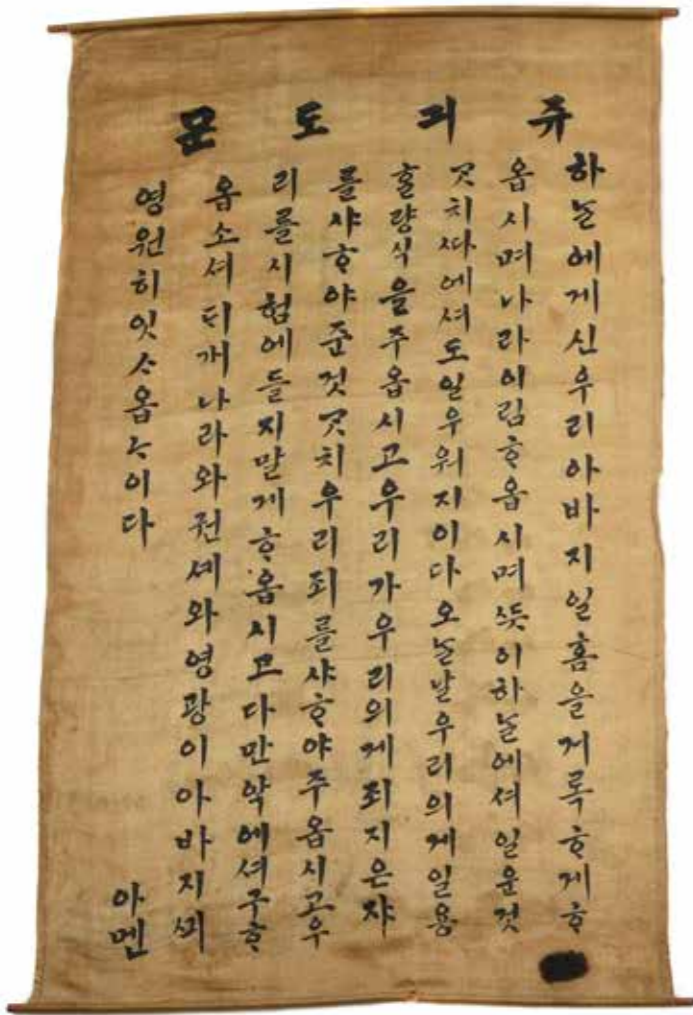 쥬긔도문
하ᄂᆞᆯ에게신우리아바지일홈을거록ᄒᆞ게ᄒᆞ
옵시며나라이림ᄒᆞ옵시며ᄯᅳᆺ이하ᄂᆞᆯ에셔일운것
ᄀᆞᆺ치ᄯᅡ에셔도일우워지이다오ᄂᆞᆯ날우리의게일용
ᄒᆞᆯ량식을주옵시고우리가우리의게죄지은쟈
를샤ᄒᆞ야준것ᄀᆞᆺ치우리죄를샤ᄒᆞ야주옵시고우
리를시험에들지말게ᄒᆞ옵시고다만악에셔구ᄒᆞ
옵소셔ᄃᆡ개나라와권셰와영광이아바지ᄭᅴ
영원히잇ᄉᆞ옵ᄂᆞ이다
아멘